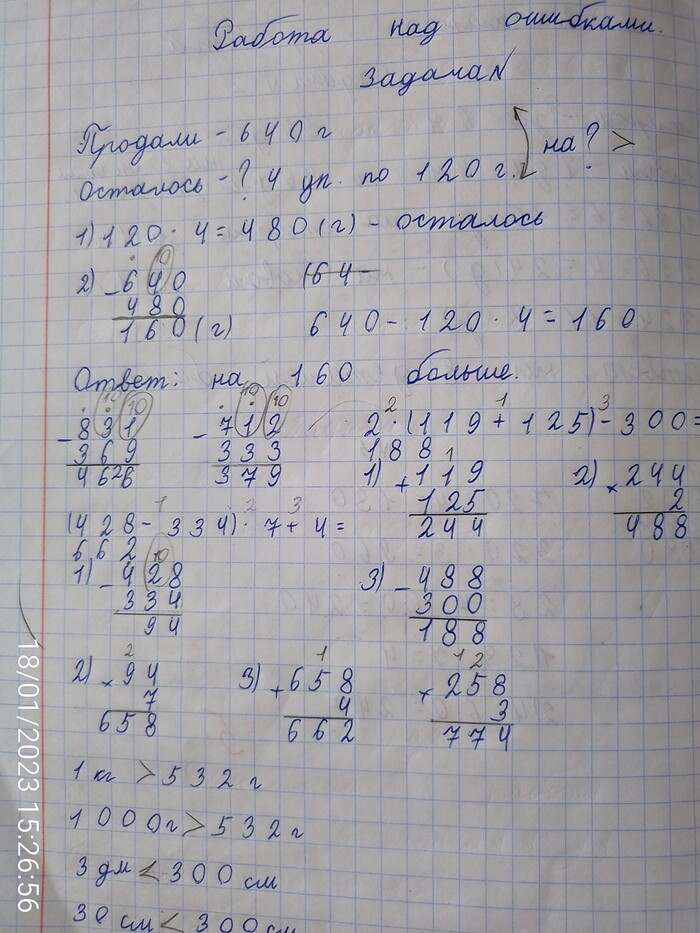 Работа над ошибками.
Задача N
Продали - 640 г
Осталось - ? 4 уп. по 120 г. на ? >
1) 120 · 4 = 480 (г) - осталось
2) - 640 (64
480
160 (г) 640 - 120 · 4 = 160
Ответ: на 160 больше.
- 831 - 712 2 · (119 + 125) - 300 =
369 333 188
4626 379 1) + 119 2) × 244
125 2
244 488
(428 - 334) · 7 + 4 =
662
1) - 428 3) - 488
334 300
94 188
2) × 94 3) + 658 × 258
7 4 3
658 662 774
1 кг > 532 г
1000 г > 532 г
3 дм < 300 см
30 см < 300 см
18/01/2023 15:26:56